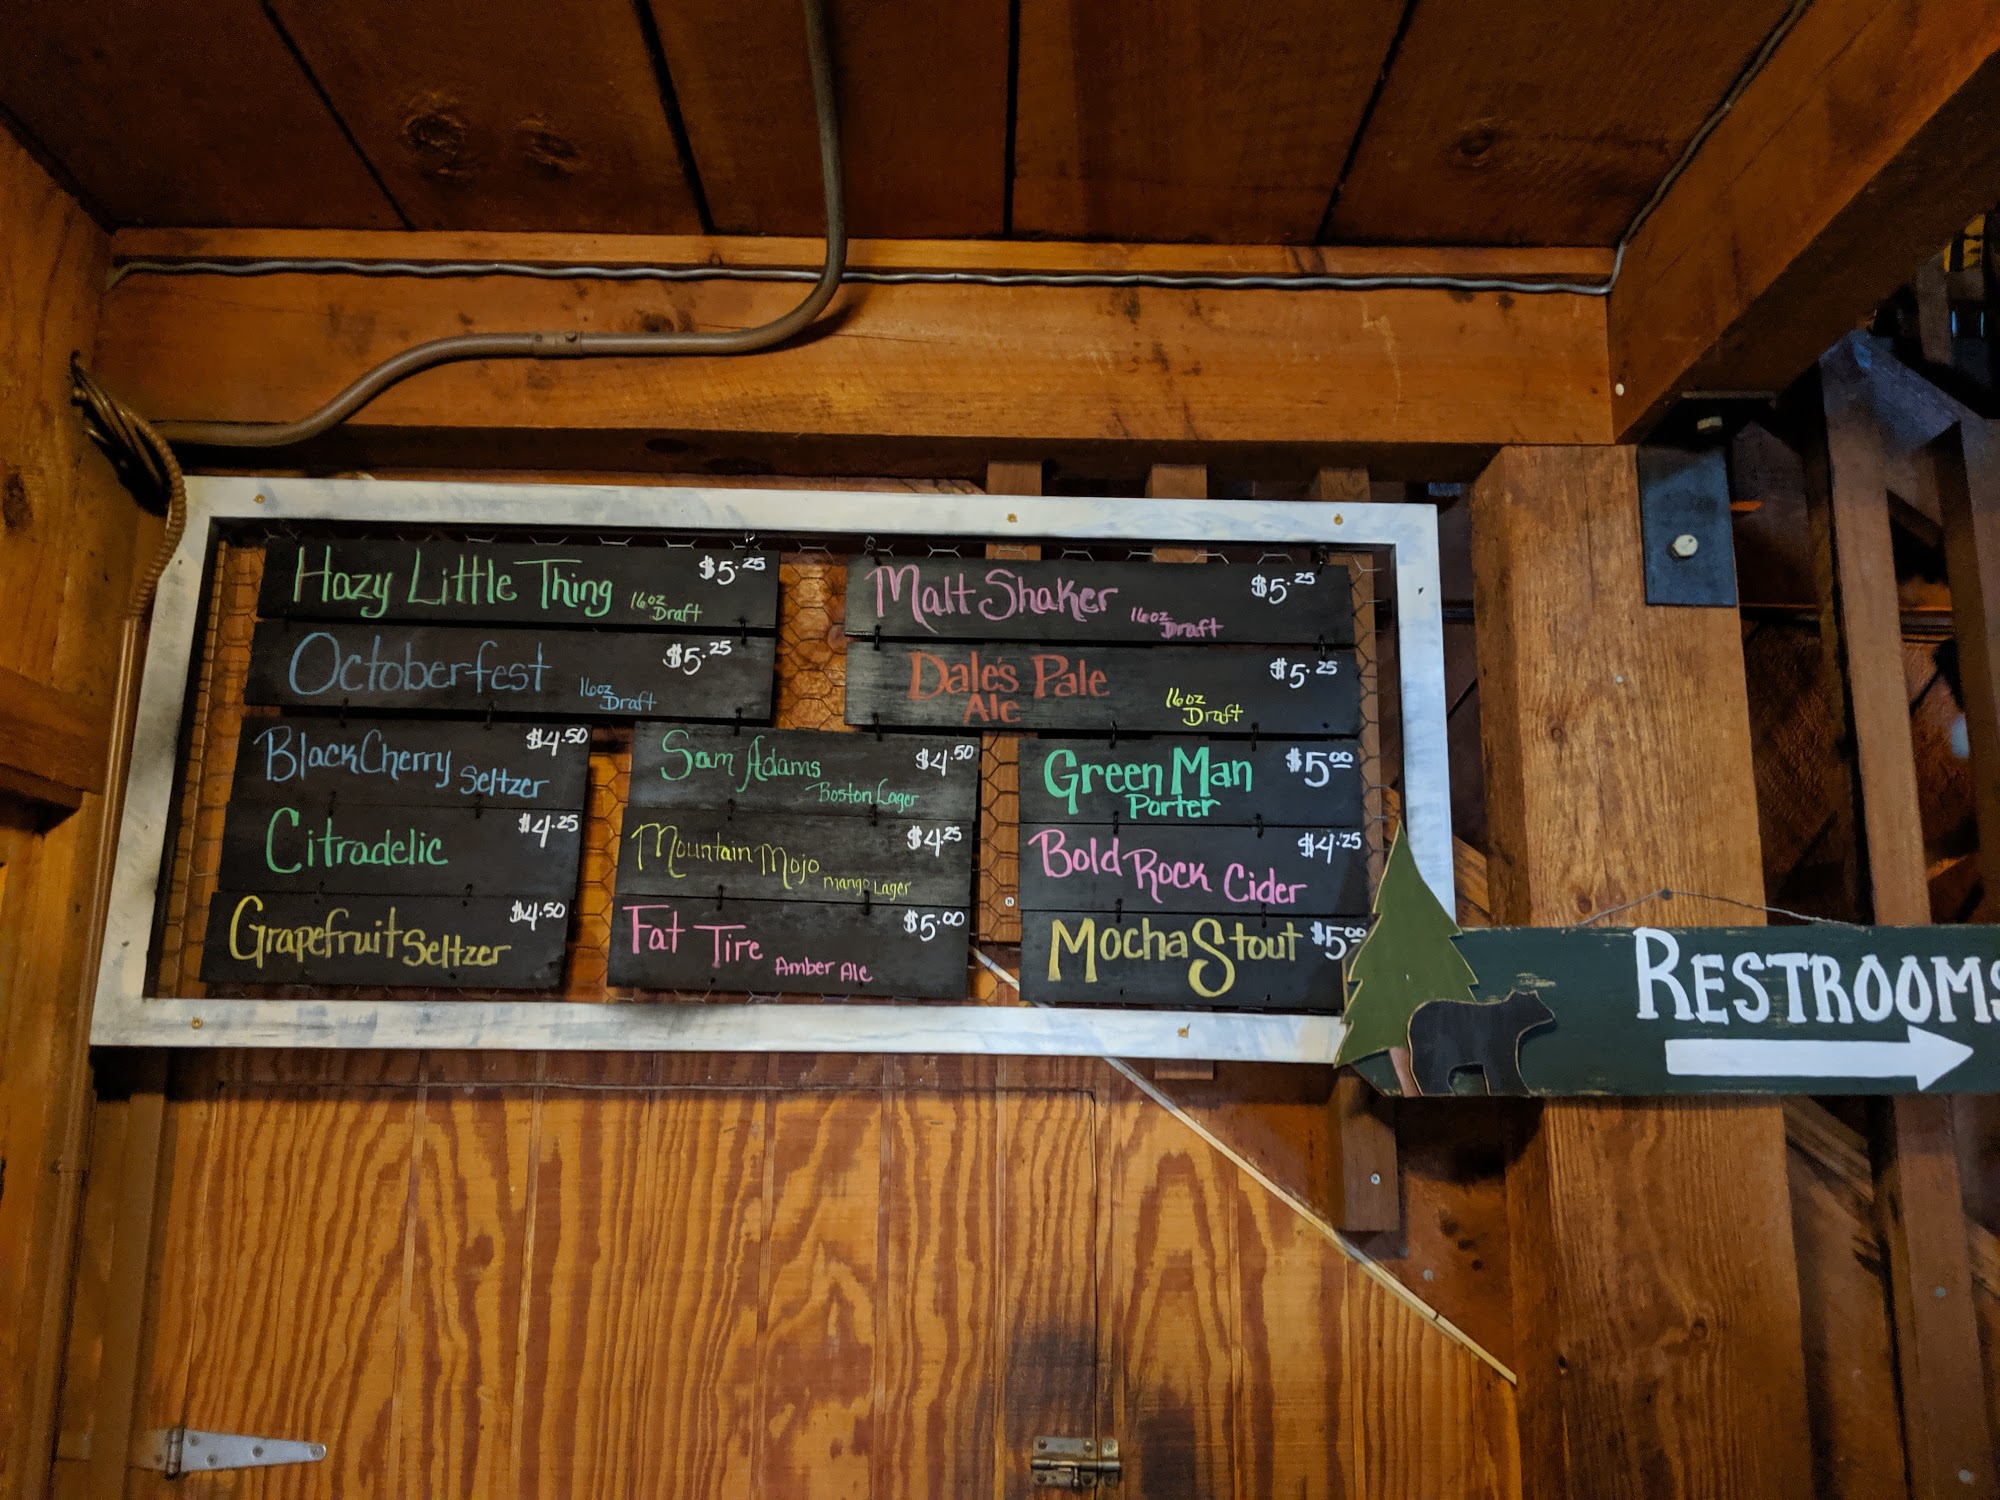 Hazy Little Thing $5.25
16oz Draft
Octoberfest $5.25
16oz Draft
Malt Shaker $5.25
16oz Draft
Dale's Pale Ale $5.25
16oz Draft
Black Cherry Seltzer $4.50
Citradelic $4.25
Grapefruit Seltzer $4.50
Sam Adams $4.50
Boston Lager
Mountain Mojo $4.25
mango Lager
Fat Tire $5.00
Amber Ale
Green Man $5.00
Porter
Bold Rock Cider $4.25
Mocha Stout $5.00
RESTROOMS